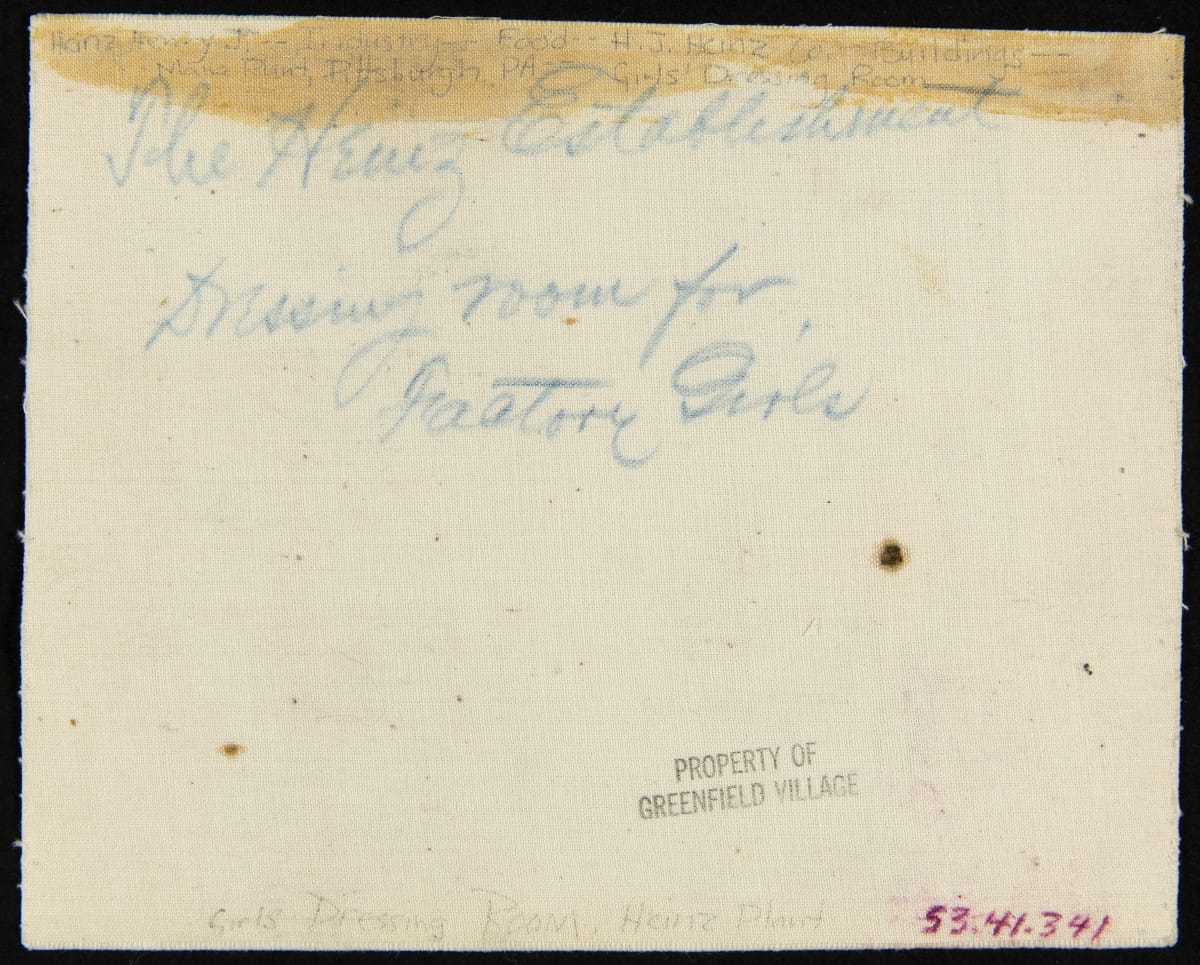 Heinz, Henry J. -- Industry -- Food -- H.J. Heinz Co. -- Buildings --
Main Plant, Pittsburgh, PA -- Girls' Dressing Room
The Heinz Establishment
Dressing room for
Factory Girls
PROPERTY OF
GREENFIELD VILLAGE
Girls' Dressing Room. Heinz Plant
53.41.341